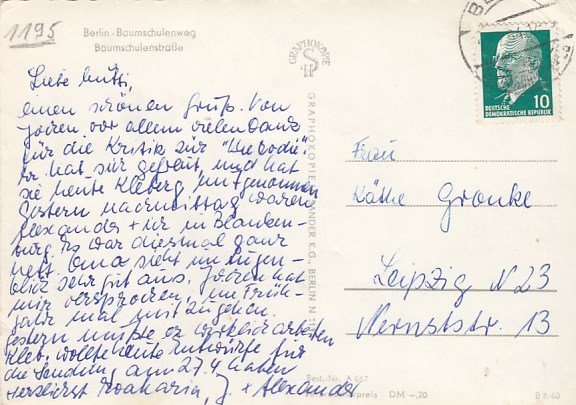 1195
Berlin-Baumschulenweg
Baumschulenstraße
Liebe Mutti,
einen schönen Gruß. Von
Jochen vor allem vielen Dank
für die Kritik zur
Er hat sich gefreut, und hat
sie heute Kleberg mitgenommen
Gestern nachmittag waren
Alexander + ich in Blanken-
burg. Es war diesmal ganz
nett. Oma sieht im Augen-
blick sehr gut aus. Jochen hat
mir versprochen, im Früh-
jahr mal mitzugehen.
Gestern mußte er wirklich arbeiten
Kleb. wollte heute Entwürfe für
die Sendung am 27.4 haben
Herzlichst Katharina, J. + Alexander
GRAPHOKOPIE
H S
GRAPHOKOPIE H. SANDER K.G., BERLIN N
DEUTSCHE
DEMOKRATISCHE REPUBLIK
10
Frau
Käthe Gronke
Leipzig N 23
Wernststr. 13
Best.-Nr. A 667
DM -,20
B 8/60